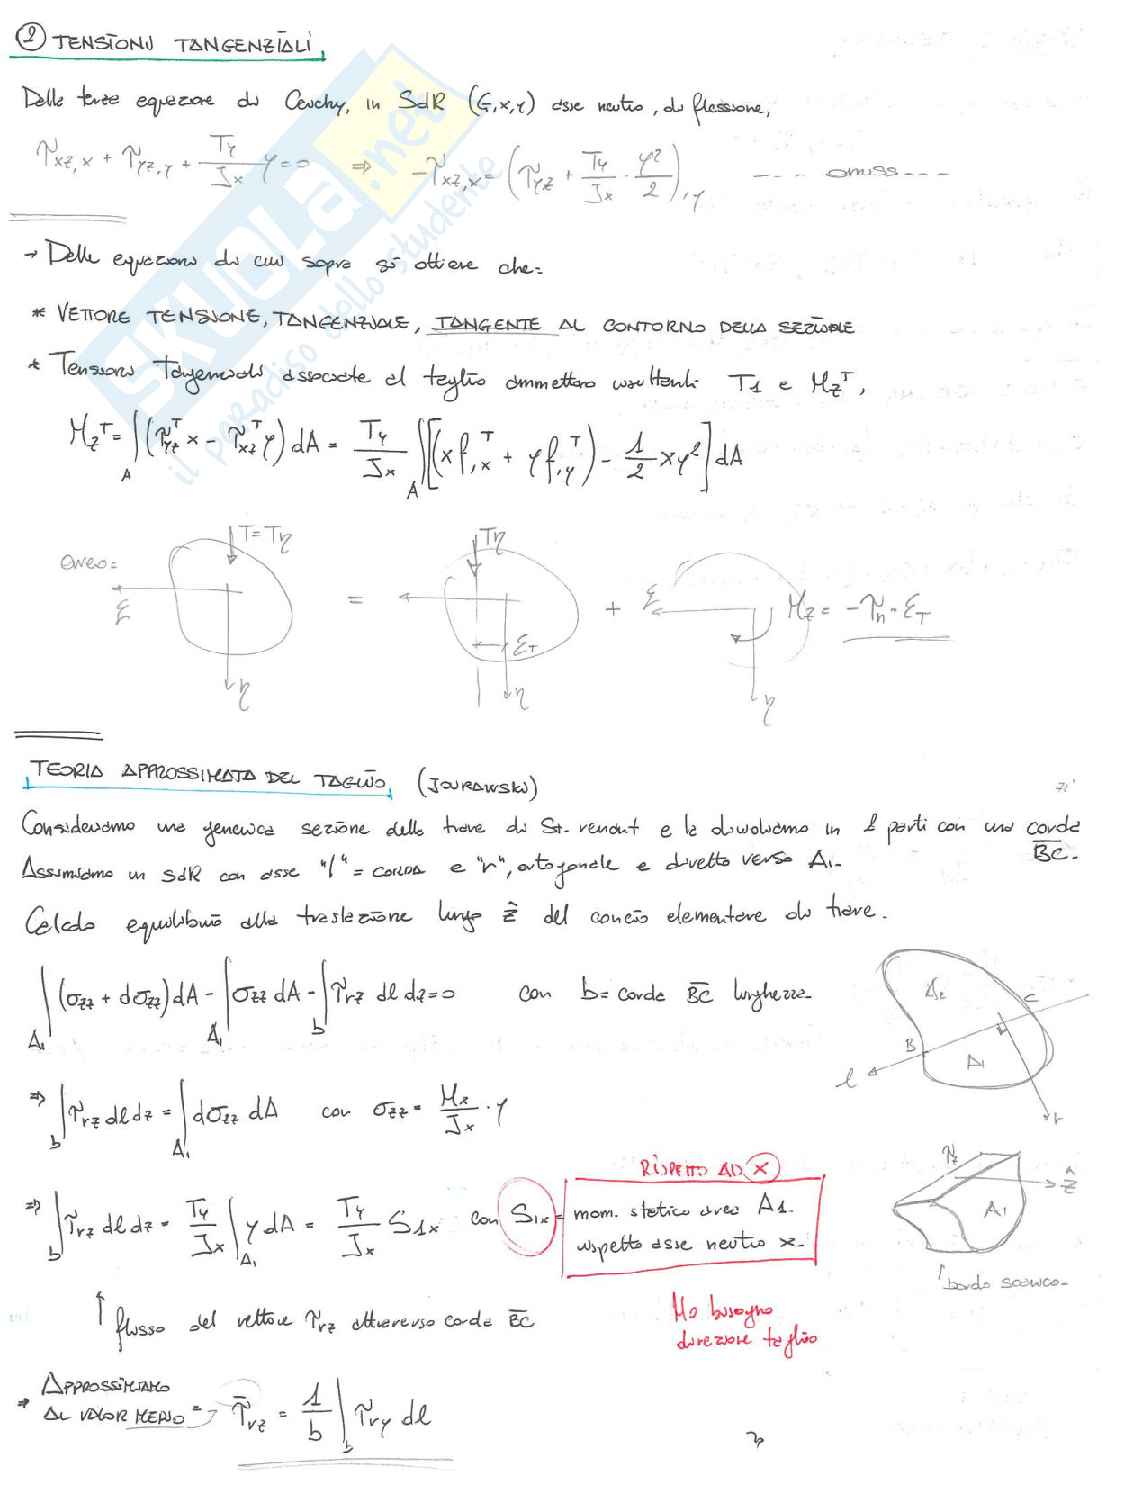 ② TENSIONI TANGENZIALI
Dalla terza equazione di Cauchy, in SdR (G,x,y) asse neutro, di flessione,
τxz,x + τyz,y + Ty/Jx y = 0 ⇒ -τxz,x = (τyz + Ty/Jx · y²/2),y --- omiss ---
→ Dalle equazioni di cui sopra si ottiene che:
* VETTORE TENSIONE, TANGENZIALE, TANGENTE AL CONTORNO DELLA SEZIONE
* Tensioni tangenziali associate al taglio ammettono risultanti T1 e Mz^T,
Mz^T = ∫A (τyz^T x - τxz^T y) dA = Ty/Jx ∫A [(x f,x^T + y f,y^T) - 1/2 xy²] dA
ovvero: T = Tη = Tη + Mz = -τη · ξT
ξ ξT ξ
η η η
TEORIA APPROSSIMATA DEL TAGLIO, (JOURAWSKI)
Consideriamo una generica sezione della trave di St. Venant e la dividiamo in 2 parti con una corda BC.
Assumiamo un SdR con asse "l" = CORDA e "r", ortogonale e diretto verso A1.
Calcolo equilibrio alla traslazione lungo ẑ del concio elementare di trave.
∫A1 (σzz + dσzz) dA - ∫A1 σzz dA - ∫b τrz dl dz = 0 con b = corda BC lunghezza.
A2
C
B
A1
l
r
⇒ ∫b τrz dl dz = ∫A1 dσzz dA con σzz = Mx/Jx · y
RISPETTO AD X
τz
ẑ
A1
⇒ ∫b τrz dl dz = Ty/Jx ∫A1 y dA = Ty/Jx S1x con S1x = mom. statico area A1
rispetto asse neutro x.
↑ bordo scarico.
↑ flusso del vettore τrz attraverso corda BC
Ho bisogno
direzione taglio
⇒ APPROSSIMIAMO
AL VALOR MEDIO = τ̄rz = 1/b ∫b τry dl
SKUOLA.net
il paradiso dello studente